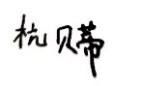 杭贝蒂